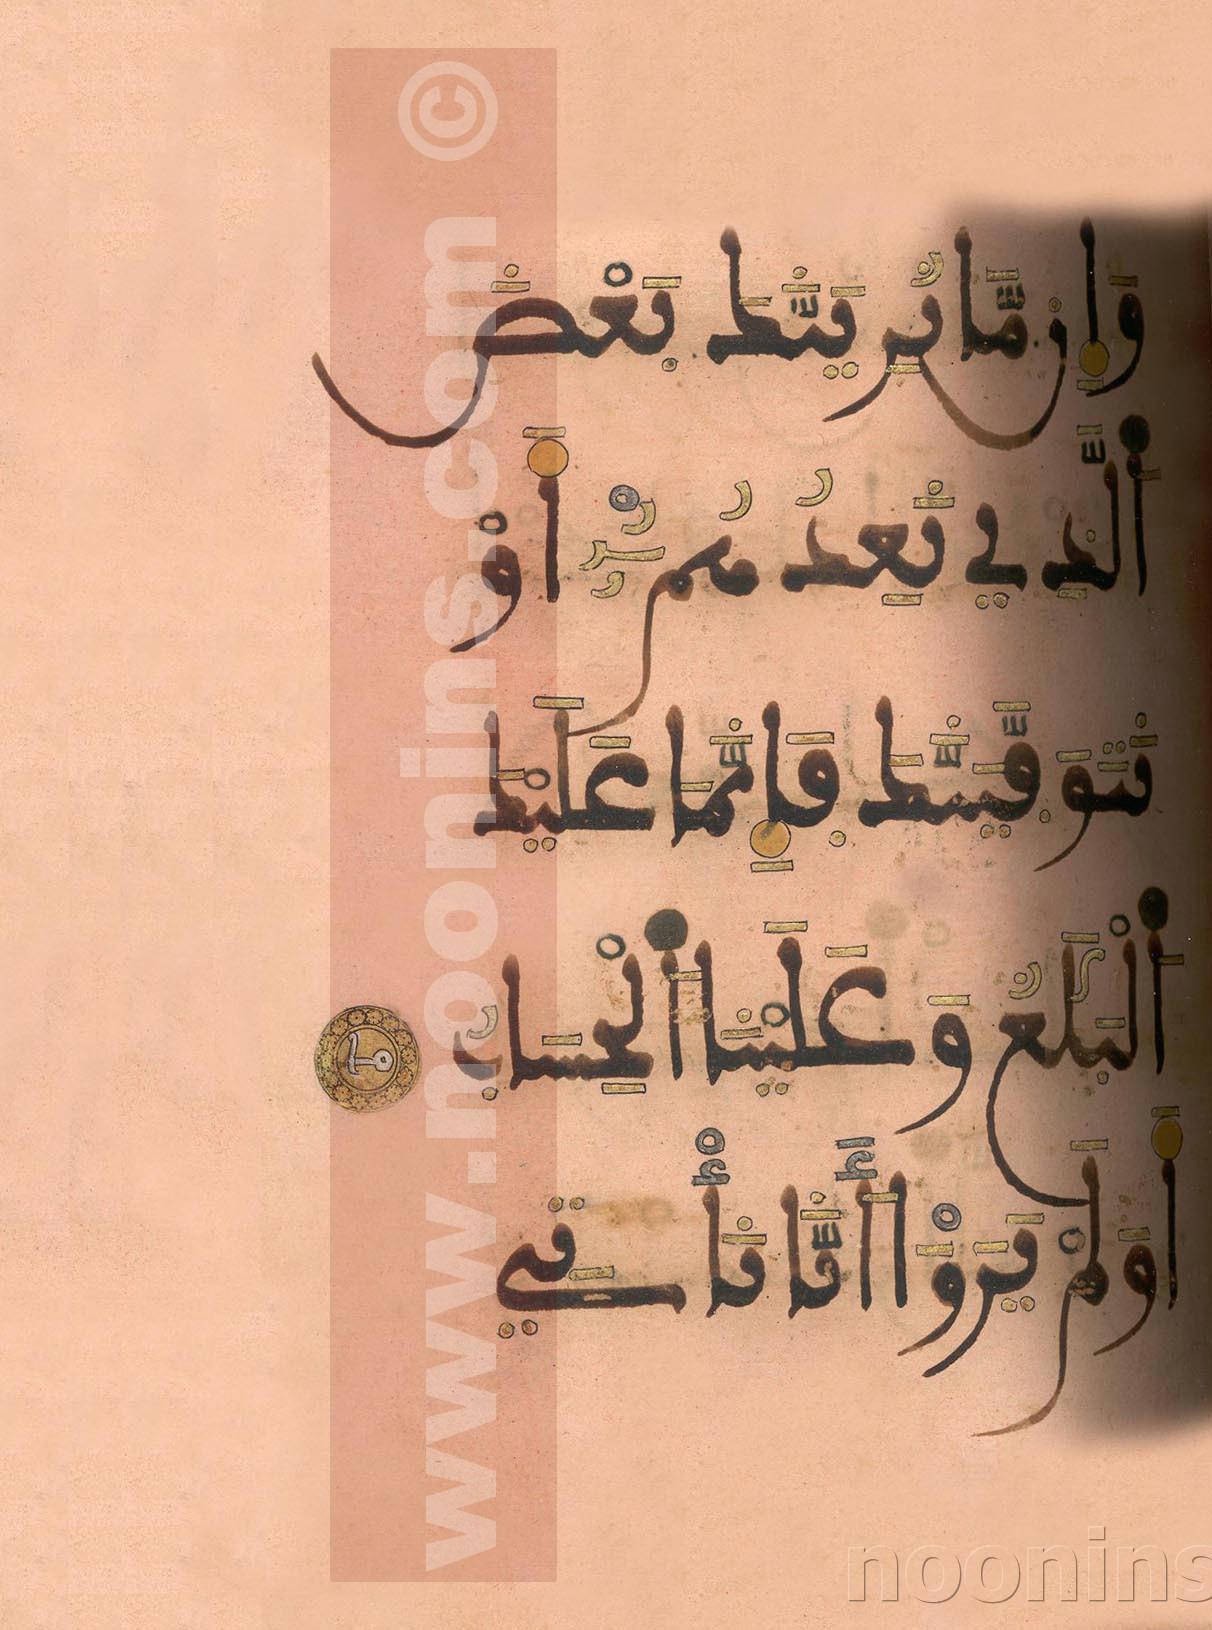 وَإِن مَّا نُرِيَنَّكَ بَعْضَ
ٱلَّذِي نَعِدُهُمُۥٓ أَوْ
نَتَوَفَّيَنَّكَ فَإِنَّمَا عَلَيْكَ
ٱلْبَلَٰغُ وَعَلَيْنَا ٱلْحِسَابُ
أَوَلَمْ يَرَوْاْ أَنَّا نَأْتِي
www.noonins.com ©
noonins